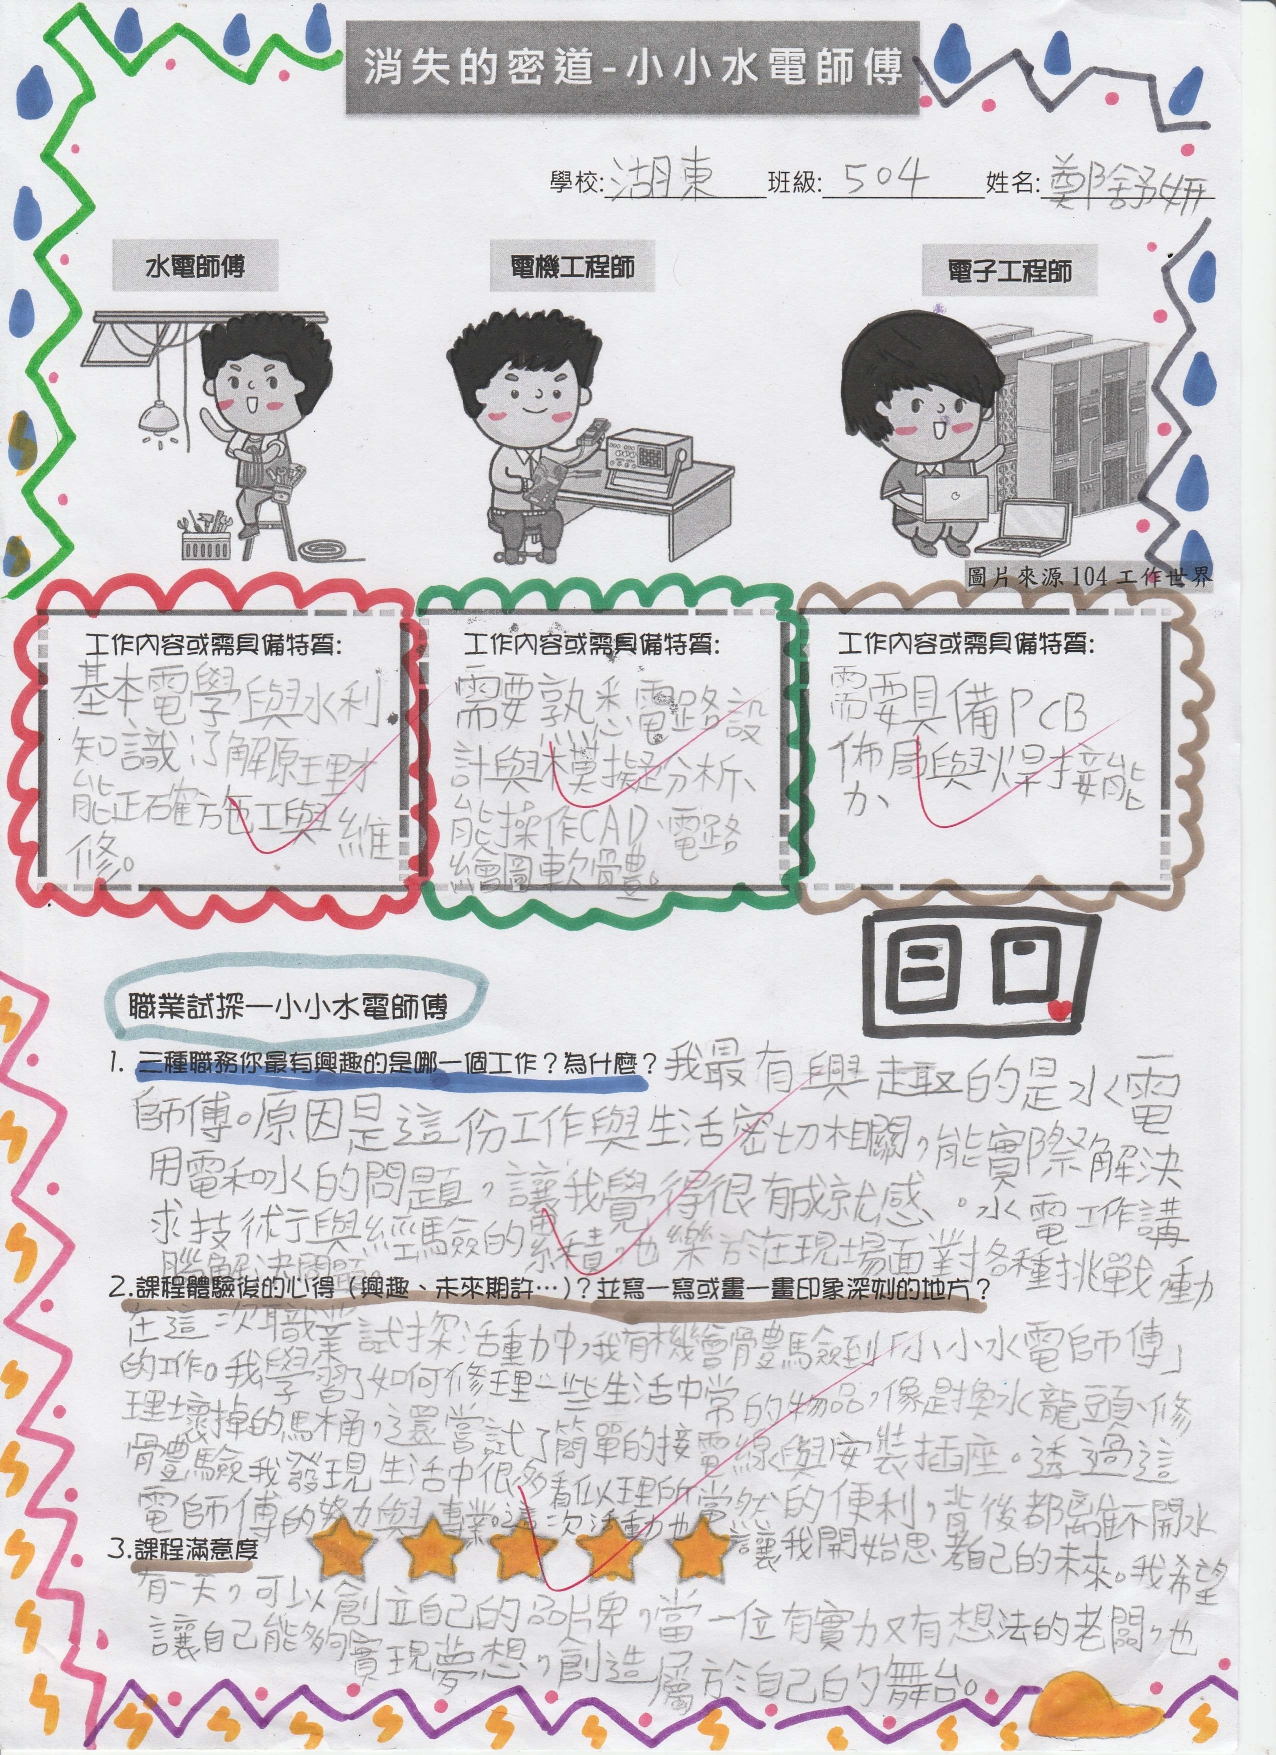 消失的密道-小小水電師傅
學校:湖東 班級:504 姓名:鄭舒妍
水電師傅 電機工程師 電子工程師
圖片來源 104 工作世界
工作內容或需具備特質:
基本電學與水利
知識了解原理才
能正確施工與維
修。
工作內容或需具備特質:
需要熟悉電路設
計與模擬分析、
能操作CAD、電路
繪圖軟體。
工作內容或需具備特質:
需要具備PCB
佈局與焊接能
力、
職業試探—小小水電師傅
1. 三種職務你最有興趣的是哪一個工作？為什麼？我最有興趣的是水電
師傅。原因是這份工作與生活密切相關，能實際解決
用電和水的問題，讓我覺得很有成就感、。水電工作講
求技術與經驗的累積，也樂於在現場面對各種挑戰，動
腦解決問題。
2.課程體驗後的心得（興趣、未來期許…）？並寫一寫或畫一畫印象深刻的地方？
在這次職業試探活動中，我有機會體驗到「小小水電師傅」
的工作。我學習了如何修理一些生活中常的物品，像是換水龍頭、修
理壞掉的馬桶，還嘗試了簡單的接電線與安裝插座。透過這
體驗我發現生活中很多看似理所當然的便利，背後都離不開水
電師傅的努力與專業。這次活動也讓我開始思考自己的未來。我希望
3.課程滿意度
有一天，可以創立自己的品牌，當一位有實力又有想法的老闆，也
讓自己能夠實現夢想，創造屬於自己的舞台。